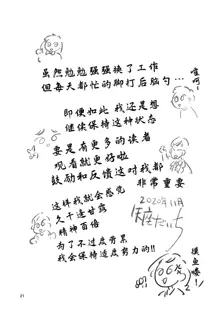 虽然勉勉强强换了工作
但每天都忙的脚打后脑勺…
喧啊~
即便如此 我还是想
继续保持这种状态
要是有更多的读者
观看就更好啦
鼓励和反馈这对我都
非常重要
这样我就会感觉
久干逢甘露
精神百倍
为了不过度劳累
我会保持适度努力的!!
2020年11月
摸鱼喽!
21